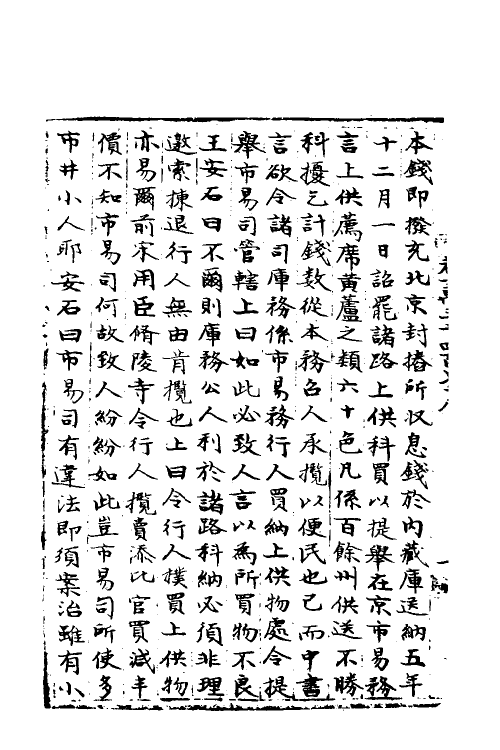 本錢即撥充北京封樁所収息錢於內藏庫送納五年
十二月一日詔罷諸路上供科買以提舉在京市易務
言上供薦席黃蘆之類六十色凡係百餘州供送不勝
科擾乞計錢数從本務召人承攬以便民也已而中書
言欲令諸司庫務係市易務行人買納上供物處令提
舉市易司管轄上曰如此必致人言以為所買物不良
王安石曰不爾則庫務公人利於諸路科納必須非理
邀索揀退行人無由肯攬也上曰令行人撲買上供物
亦易爾前宋用臣脩陵寺令行人攬賣添比官買減半
價不知市易司何故致人紛紛如此豈市易司所使多
市井小人耶安石曰市易司有違法即須案治雖有小